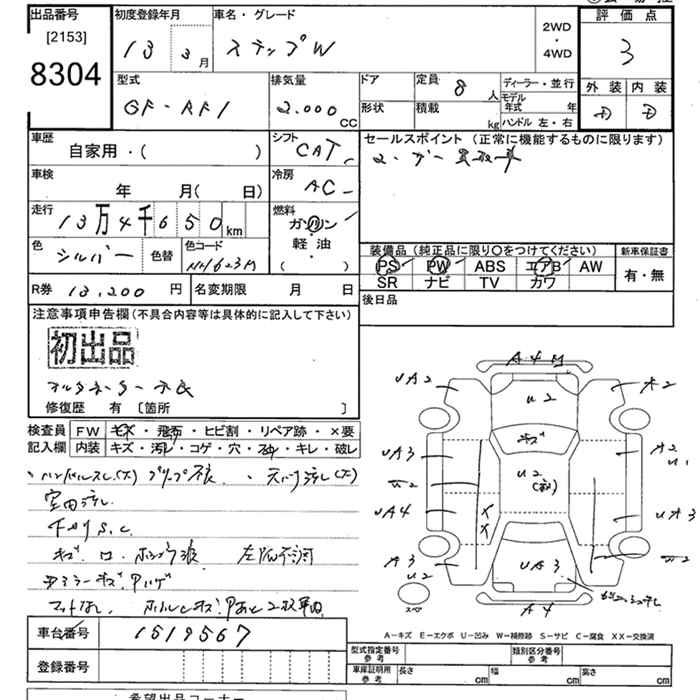 出品番号
[2153]
8304
初度登録年月
13 3月
車名・グレード
ステップW
2WD
・
4WD
評価点
3
外装 内装
D D
型式
GF-RF1
排気量
2.000 CC
ドア
形状
定員 8人
積載 kg
ディーラー・並行
モデル年式 年
ハンドル 左・右
車歴
自家用・( )
シフト
CAT
セールスポイント (正常に機能するものに限ります)
ユーザー買取車
車検
年 月( 日)
冷房
AC
走行
13万4千650km
燃料
ガソリン
軽油
( )
色
シルバー
色替
色コード
NH623M
装備品 (純正品に限り○をつけてください)
PS PW ABS エアB AW
SR ナビ TV カワ
新車保証書
有・無
R券 13,200円
名変期限 月 日
後日品
注意事項申告欄(不具合内容等は具体的に記入して下さい)
初出品
オルタネーター不良
修復歴 有 〔箇所 〕
検査員記入欄
FW キズ・飛石・ヒビ割・リペア跡・×要
内装 キズ・汚れ・コゲ・穴・ネジ・キレ・破レ
ハンドルスレ(大) グリップ 天張汚レ(大)
室内汚レ
下廻りS.C
ミラーキズ.Pハゲ
マットなし
車台番号 1519567
登録番号
A4
UA2
U2
A2
キズ
UA3
U2
A2
U1
UA4
XX
UA3
A3
U2
UA3
A4
スペア
A-キズ E-エクボ U-凹み W-補修跡 S-サビ C-腐食 XX-交換済
型式指定番号
参考
類別区分番号
参考
車庫証明用
参考
長さ cm
幅 cm
高さ cm
希望出品コーナー